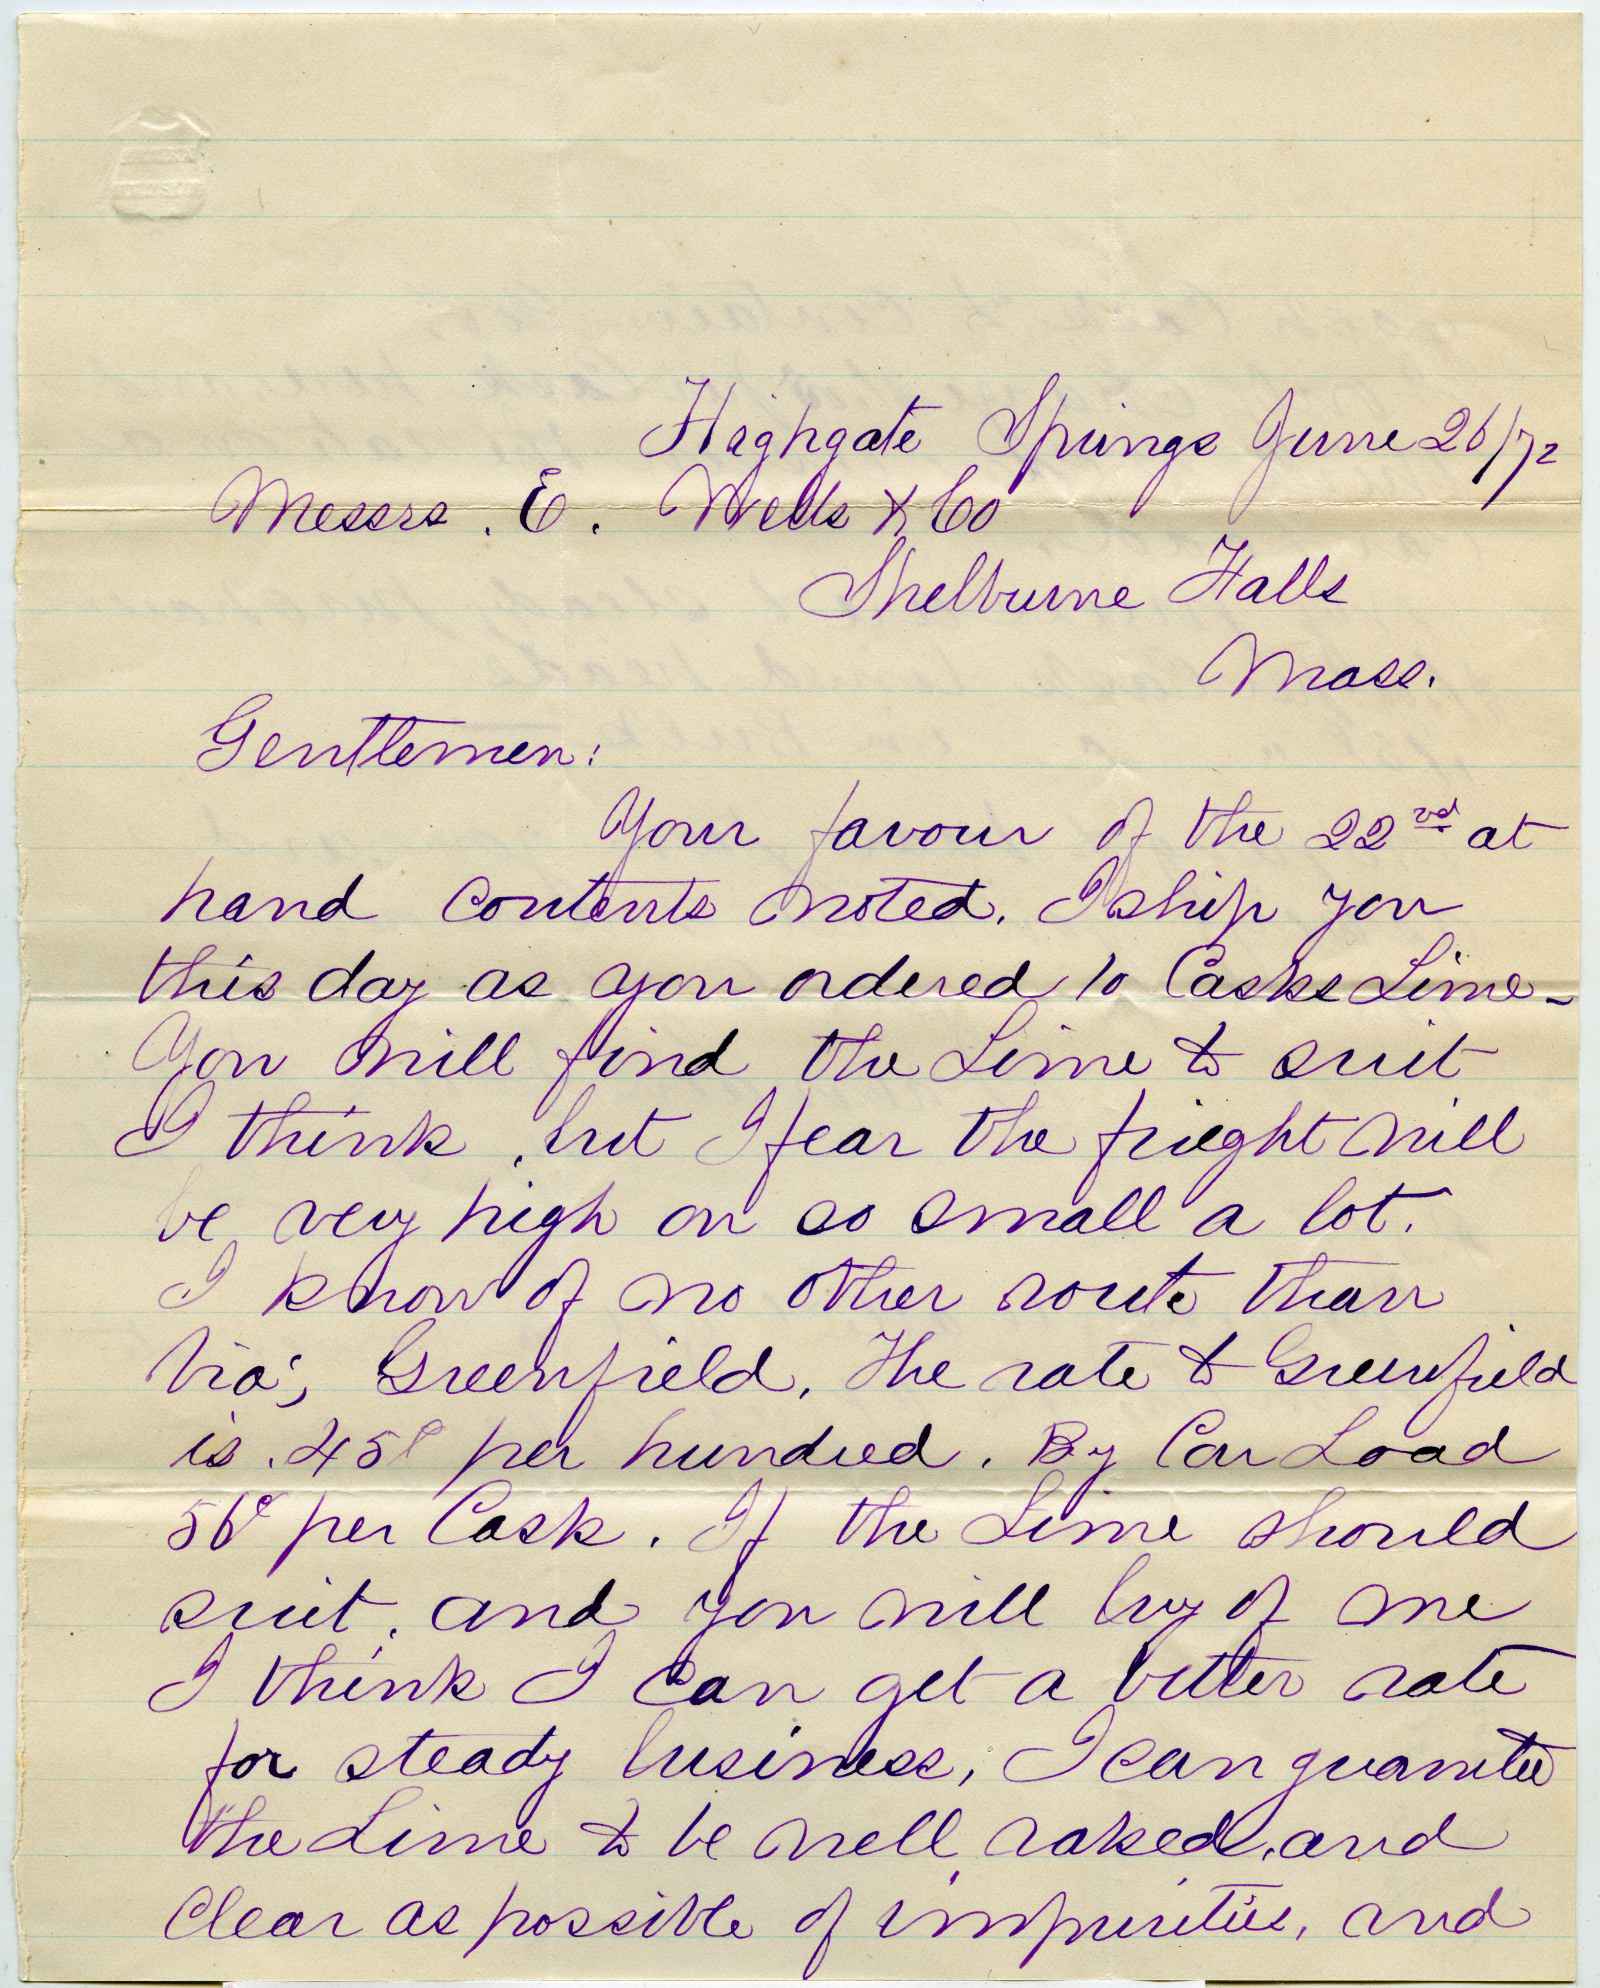 Highgate Springs June 26/72
Messrs. E. Wells & Co
Shelburne Falls
Mass.
Gentlemen:
Your favour of the 22nd at
hand contents noted. I ship you
this day as you ordered 10 Casks Lime-
You will find the Lime to suit
I think, but I fear the frieght will
be very high on so small a lot.
I know of no other route than
Via; Greenfield. The rate to Greenfield
is .45¢ per hundred. By Car Load
56c per Cask. If the Lime should
suit, and you will buy of me
I think I can get a better rate
for steady business, I can guarntee
the Lime to be well raked, and
Clear as possible of impurities, and